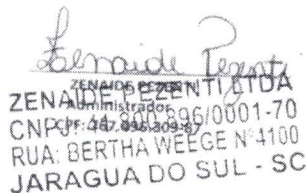 Zenaide Pezenti
ZENAIDE PEZENTI
Administrador
ZENAIDE PEZENTI LTDA
CNPJ: 800.896/0001-70
RUA: BERTHA WEEGE Nº 4100
JARAGUA DO SUL - SC